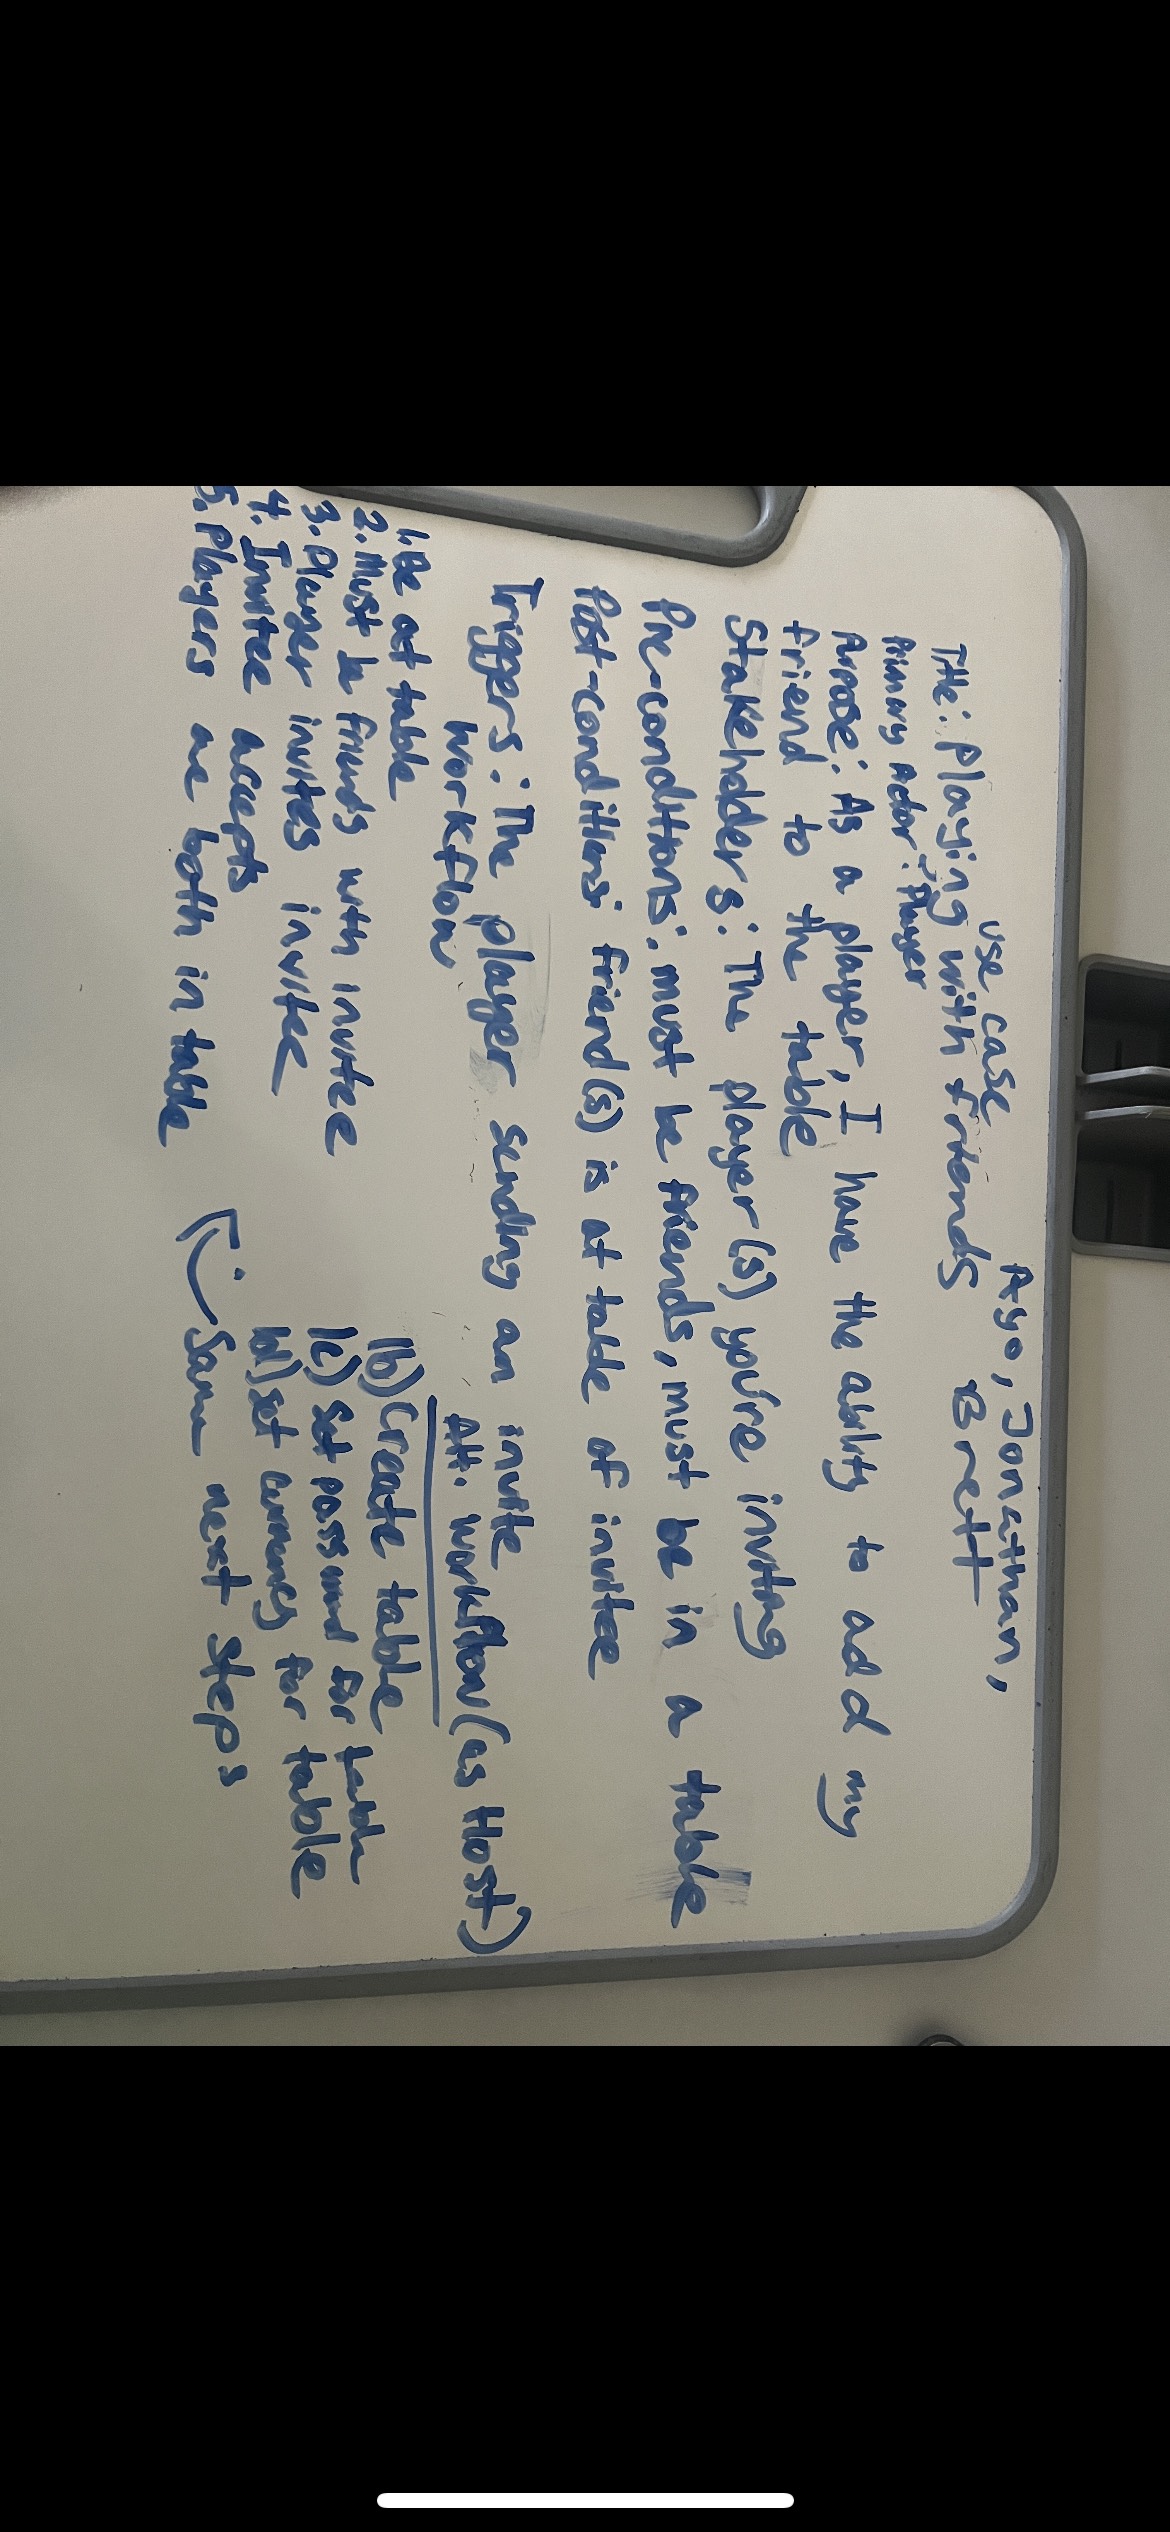 Use case
Ayo, Jonathan,
Brett
Title: playing with friends
Primary Actor: Player
Purpose: As a player, I have the ability to add my
friend to the table
Stakeholders: The player(s) you're inviting
Pre-conditions: must be friends, must be in a table
Post-conditions: friend(s) is at table of invitee
Triggers: The player sending an invite
Workflow
1. Be at table
2. Must be friends with invitee
3. Player invites invitee
4. Invitee accepts
5. Players are both in table
Alt. workflow (as Host)
1b) Create table
1c) Set password for table
1d) set currency for table
Same next steps